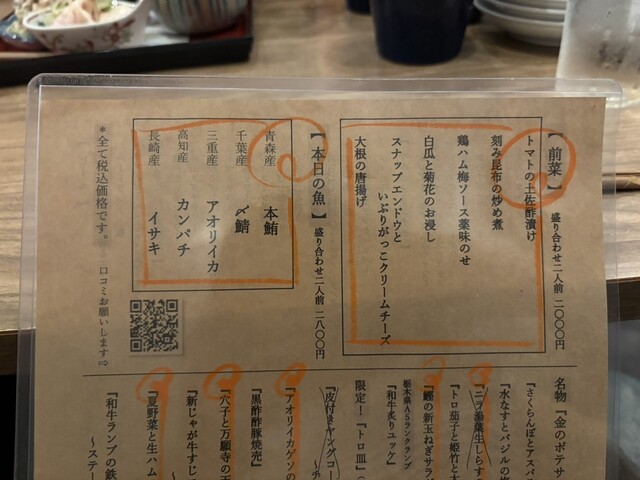 【前菜】 盛り合わせ二人前 二〇〇〇円
トマトの土佐酢漬け
刻み昆布の炒め煮
鶏ハム梅ソース薬味のせ
白瓜と菊花のお浸し
スナップエンドウと
いぶりがっこクリームチーズ
大根の唐揚げ
【本日の魚】 盛り合わせ二人前 二八〇〇円
青森産 本鮪
千葉産 〆鯖
三重産 アオリイカ
高知産 カンパチ
長崎産 イサキ
*全て税込価格です。 口コミお願いします⇨
名物『金のポテサ
『さくらんぼとアスパ
『水なすとバジルの
『ニラ湯葉生しらす
『トロ茄子と姫竹と
『鰹の新玉ねぎサラ
栃木県A5ランクランプ
『和牛炙りユッケ』
限定！『トロ皿』
『皮付きヤングコー
『アオリイカゲソの
『黒酢酢豚焼売』
『穴子と万願寺の天
『新じゃが牛すじ
『夏野菜と生ハム
『和牛ランプの鉄
～ステー